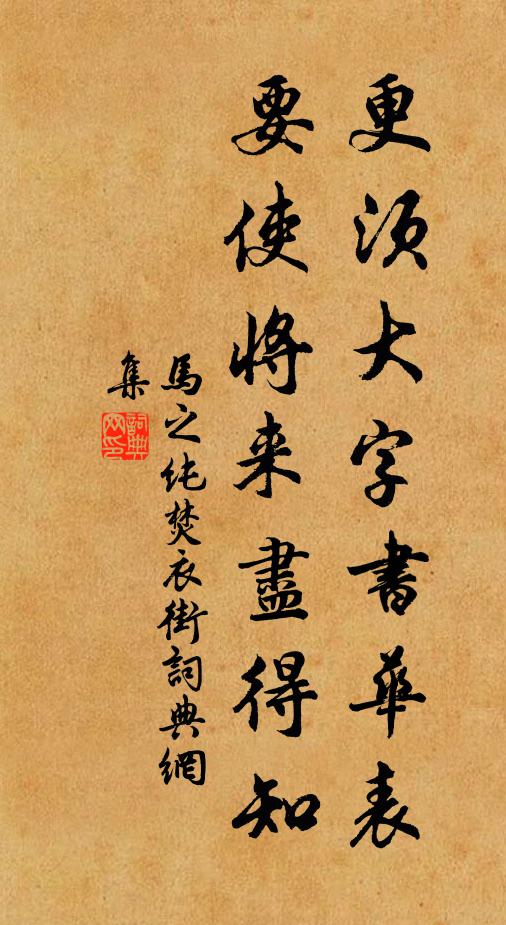 更须大字書華表
要使將来盡得知
馬之純焚衣街詞典網
集
詞典网印